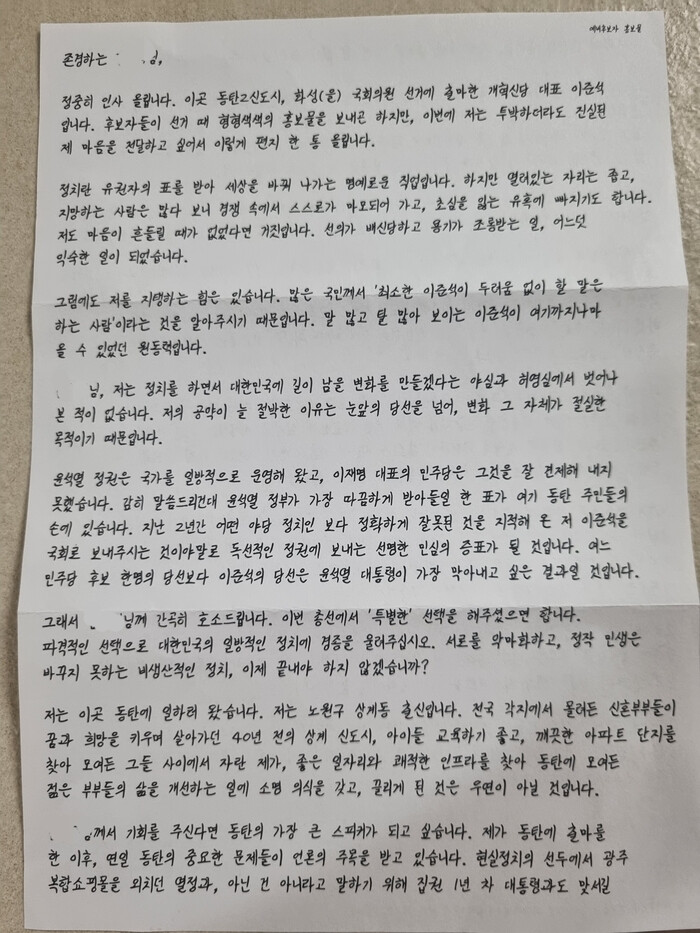 예비후보자 홍보물
존경하는 님,
정중히 인사 올립니다. 이곳 동탄2신도시, 화성(을) 국회의원 선거에 출마한 개혁신당 대표 이준석
입니다. 후보자들이 선거 때 형형색색의 홍보물을 보내곤 하지만, 이번에 저는 투박하더라도 진실된
제 마음을 전달하고 싶어서 이렇게 편지 한 통 올립니다.
정치란 유권자의 표를 받아 세상을 바꿔 나가는 명예로운 직업입니다. 하지만 열려있는 자리는 좁고,
지망하는 사람은 많다 보니 경쟁 속에서 스스로가 마모되어 가고, 초심을 잃는 유혹에 빠지기도 합니다.
저도 마음이 흔들릴 때가 없었다면 거짓입니다. 선의가 배신당하고 용기가 조롱받는 일, 어느덧
익숙한 일이 되었습니다.
그럼에도 저를 지탱하는 힘은 있습니다. 많은 국민께서 '최소한 이준석이 두려움 없이 할 말은
하는 사람'이라는 것을 알아주시기 때문입니다. 말 많고 탈 많아 보이는 이준석이 여기까지나마
올 수 있었던 원동력입니다.
님, 저는 정치를 하면서 대한민국에 길이 남을 변화를 만들겠다는 야심과 허영심에서 벗어나
본 적이 없습니다. 저의 공약이 늘 절박한 이유는 눈앞의 당선을 넘어, 변화 그 자체가 절실한
목적이기 때문입니다.
윤석열 정권은 국가를 일방적으로 운영해 왔고, 이재명 대표의 민주당은 그것을 잘 견제해 내지
못했습니다. 감히 말씀드리건대 윤석열 정부가 가장 따끔하게 받아들일 한 표가 여기 동탄 주민들의
손에 있습니다. 지난 2년간 어떤 야당 정치인 보다 정확하게 잘못된 것을 지적해 온 저 이준석을
국회로 보내주시는 것이야말로 독선적인 정권에 보내는 선명한 민심의 증표가 될 것입니다. 여느
민주당 후보 한명의 당선보다 이준석의 당선은 윤석열 대통령이 가장 막아내고 싶은 결과일 것입니다.
그래서 님께 간곡히 호소드립니다. 이번 총선에서 '특별한' 선택을 해주셨으면 합니다.
파격적인 선택으로 대한민국의 일방적인 정치에 경종을 울려주십시오. 서로를 악마화하고, 정작 민생은
바꾸지 못하는 비생산적인 정치, 이제 끝내야 하지 않겠습니까?
저는 이곳 동탄에 일하러 왔습니다. 저는 노원구 상계동 출신입니다. 전국 각지에서 몰려든 신혼부부들이
꿈과 희망을 키우며 살아가던 40년 전의 상계 신도시, 아이들 교육하기 좋고, 깨끗한 아파트 단지를
찾아 모여든 그들 사이에서 자란 제가, 좋은 일자리와 쾌적한 인프라를 찾아 동탄에 모여든
젊은 부부들의 삶을 개선하는 일에 소명 의식을 갖고, 끌리게 된 것은 우연이 아닐 것입니다.
님께서 기회를 주신다면 동탄의 가장 큰 스피커가 되고 싶습니다. 제가 동탄에 출마를
한 이후, 연일 동탄의 중요한 문제들이 언론의 주목을 받고 있습니다. 현실정치의 선두에서 광주
복합쇼핑몰을 외치던 열정과, 아닌 건 아니라고 말하기 위해 집권 1년 차 대통령과도 맞서길